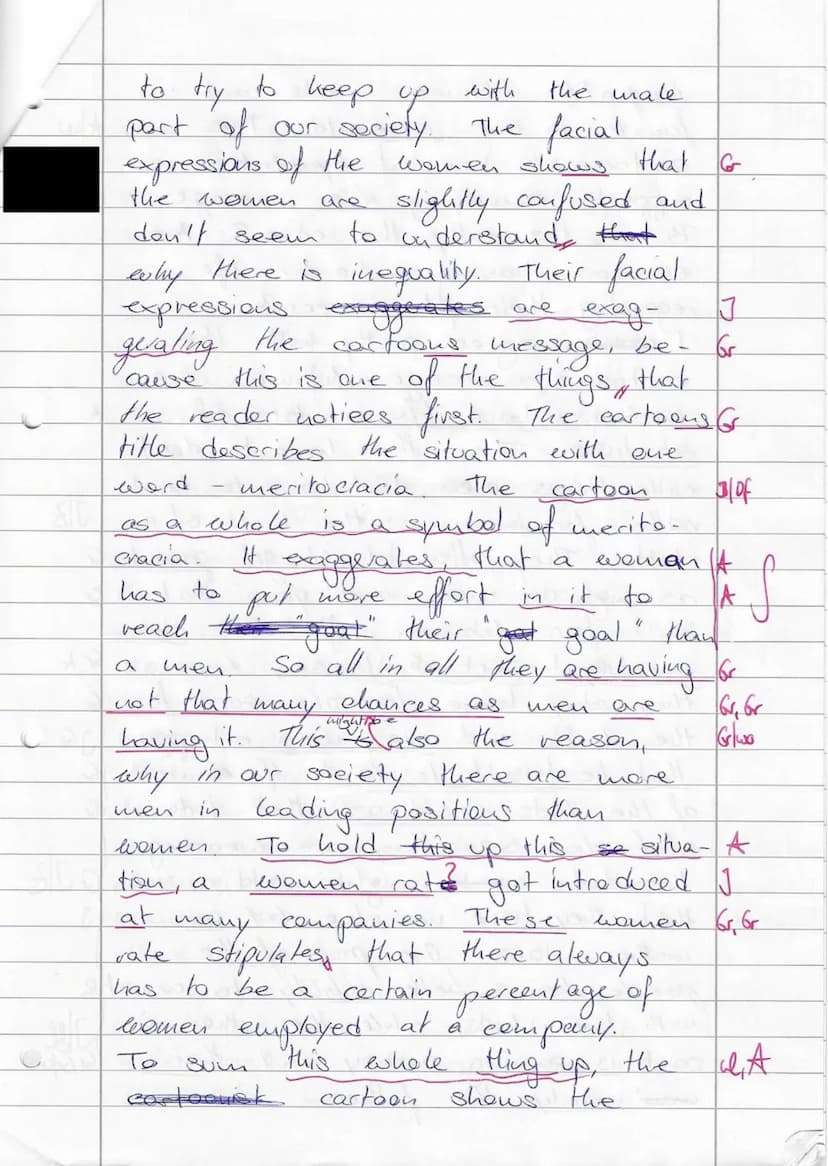 to try to keep up with the male
part of our society. The facial
expressions of the women shows that Gr
the women are slightly confused and
don't seem to understand, that
why there is inequality. Their facial
expressions exaggerates are exag- J
gerating the cartoons message, be- Gr
cause this is one of the things, that
the reader notices first. The cartoons Gr
title describes the situation with one
word - meritocracia. The cartoon
as a whole is a symbol of merito-
cracia. It exaggerates, that a woman A
has to put more effort in it to A
reach their "goal" their "gol goal" than
a men. So all in all they are having Gr
not that many chances as men are Gr, Gr
having it. This might be also the reason,
why in our society there are more
men in leading positions than
women. To hold this up this se situa- A
tion, a women rate ? got introduced J
at many companies. These women Gr, Gr
rate stipulates, that there always
has to be a certain percentage of
women employed at a company.
To sum this whole thing up, the A
cartoonist cartoon shows the